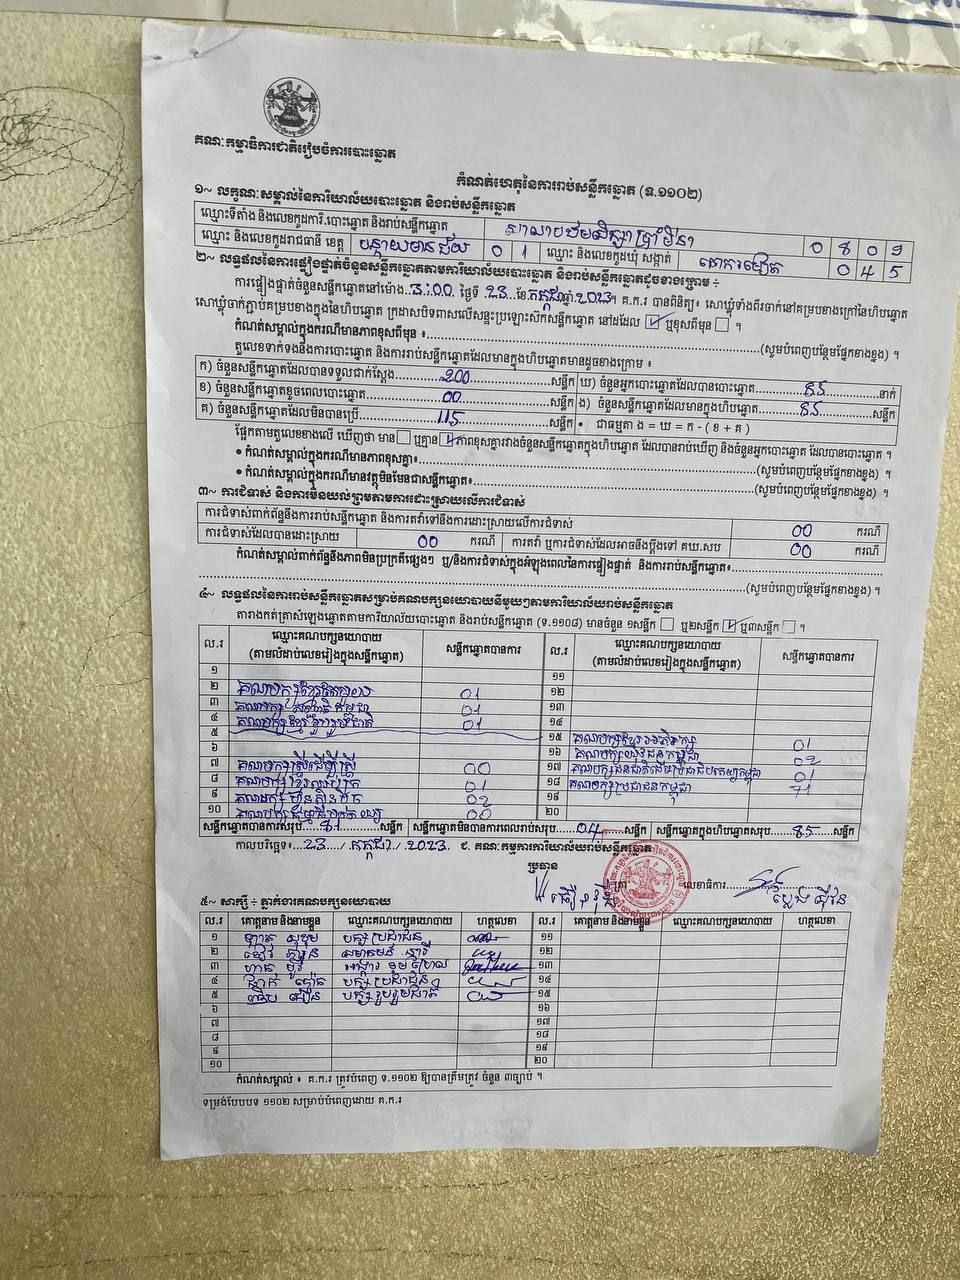 គណៈកម្មាធិការជាតិរៀបចំការបោះឆ្នោត
កំណត់ហេតុនៃការរាប់សន្លឹកឆ្នោត (ទ.១១០២)
១~ លក្ខណៈសម្គាល់នៃការិយាល័យបោះឆ្នោត និងរាប់សន្លឹកឆ្នោត
ឈ្មោះទីតាំង និងលេខកូដការិ.បោះឆ្នោត និងរាប់សន្លឹកឆ្នោត 0 8 0 9
ឈ្មោះ និងលេខកូដរាជធានី ខេត្ត បន្ទាយមានជ័យ 0 1 ឈ្មោះ និងលេខកូដឃុំ សង្កាត់ 0 4 5
២~ លទ្ធផលនៃការផ្ទៀងផ្ទាត់ចំនួនសន្លឹកឆ្នោតតាមការិយាល័យបោះឆ្នោត និងរាប់សន្លឹកឆ្នោតដូចខាងក្រោម ÷
ការផ្ទៀងផ្ទាត់ចំនួនសន្លឹកឆ្នោតនៅម៉ោង 3:00 ថ្ងៃទី 23 ខែ កក្កដា ឆ្នាំ 2023 ។ គ.ក.រ បានពិនិត្យ៖ សោឃ្លុំទាំងពីរចាក់នៅគម្របខាងក្រៅនៃហិបឆ្នោត
សោឃ្លុំចាក់ភ្ជាប់គម្របខាងក្នុងនៃហិបឆ្នោត ក្រដាសបិទពាសលើសន្ទះប្រឡោះស៊កសន្លឹកឆ្នោត នៅដដែល ☑ ឬខុសពីមុន ☐ ។
កំណត់សម្គាល់ក្នុងករណីមានភាពខុសពីមុន ៖ (សូមបំពេញបន្ថែមផ្នែកខាងខ្នង) ។
តួលេខទាក់ទងនឹងការបោះឆ្នោត និងការរាប់សន្លឹកឆ្នោតដែលមានក្នុងហិបឆ្នោតមានដូចខាងក្រោម ៖
ក) ចំនួនសន្លឹកឆ្នោតដែលបានទទួលជាក់ស្តែង 200 សន្លឹក ឃ) ចំនួនអ្នកបោះឆ្នោតដែលបានបោះឆ្នោត 85 នាក់
ខ) ចំនួនសន្លឹកឆ្នោតខូចពេលបោះឆ្នោត 00 សន្លឹក ង) ចំនួនសន្លឹកឆ្នោតដែលមានក្នុងហិបឆ្នោត 85 សន្លឹក
គ) ចំនួនសន្លឹកឆ្នោតដែលមិនបានប្រើ 115 សន្លឹក • ជាធម្មតា ង = ឃ = ក - ( ខ + គ )
ផ្អែកតាមតួលេខខាងលើ ឃើញថា មាន ☐ ឬគ្មាន ☑ ភាពខុសគ្នារវាងចំនួនសន្លឹកឆ្នោតក្នុងហិបឆ្នោត ដែលបានរាប់ឃើញ និងចំនួនអ្នកបោះឆ្នោត ដែលបានបោះឆ្នោត ។
• កំណត់សម្គាល់ក្នុងករណីមានភាពខុសគ្នា៖ (សូមបំពេញបន្ថែមផ្នែកខាងខ្នង) ។
• កំណត់សម្គាល់ក្នុងករណីមានវត្ថុមិនមែនជាសន្លឹកឆ្នោត៖ (សូមបំពេញបន្ថែមផ្នែកខាងខ្នង) ។
៣~ ការជំទាស់ និងការមិនយល់ព្រមតាមការដោះស្រាយលើការជំទាស់
ការជំទាស់ពាក់ព័ន្ធនឹងការរាប់សន្លឹកឆ្នោត និងការតវ៉ាទៅនឹងការដោះស្រាយលើការជំទាស់ 00 ករណី
ការជំទាស់ដែលបានដោះស្រាយ 00 ករណី ការតវ៉ា ឬការជំទាស់ដែលអាចនឹងប្តឹងទៅ គឃ.សប 00 ករណី
កំណត់សម្គាល់ពាក់ព័ន្ធនឹងភាពមិនប្រក្រតីផ្សេងៗ ឬ/និងការជំទាស់ក្នុងអំឡុងពេលនៃការផ្ទៀងផ្ទាត់ និងការរាប់សន្លឹកឆ្នោត៖
(សូមបំពេញបន្ថែមផ្នែកខាងខ្នង) ។
៤~ លទ្ធផលនៃការរាប់សន្លឹកឆ្នោតសម្រាប់គណបក្សនយោបាយនីមួយៗតាមការិយាល័យរាប់សន្លឹកឆ្នោត
តារាងកត់ត្រាសំឡេងឆ្នោតតាមការិយាល័យបោះឆ្នោត និងរាប់សន្លឹកឆ្នោត (ទ.១១០៨) មានចំនួន ១សន្លឹក ☐ ឬ២សន្លឹក ☑ ឬ៣សន្លឹក ☐ ។
ល.រ ឈ្មោះគណបក្សនយោបាយ សន្លឹកឆ្នោតបានការ ល.រ ឈ្មោះគណបក្សនយោបាយ សន្លឹកឆ្នោតបានការ
(តាមលំដាប់លេខរៀងក្នុងសន្លឹកឆ្នោត) (តាមលំដាប់លេខរៀងក្នុងសន្លឹកឆ្នោត)
១ ១១
២ 01 ១២
៣ 01 ១៣
៤ 01 ១៤
៥ ១៥ 01
៦ ១៦ គណបក្សយុវជនកម្ពុជា 02
៧ គណបក្សស្ត្រីដើម្បីស្ត្រី 00 ១៧ គណបក្សជនជាតិដើមប្រជាធិបតេយ្យកម្ពុជា 01
៨ 01 ១៨ គណបក្សប្រជាជនកម្ពុជា 71
៩ 02 ១៩
១០ គណបក្សធម្មាធិបតេយ្យ 00 ២០
សន្លឹកឆ្នោតបានការសរុប 81 សន្លឹក សន្លឹកឆ្នោតមិនបានការពេលរាប់សរុប 04 សន្លឹក សន្លឹកឆ្នោតក្នុងហិបឆ្នោតសរុប 85 សន្លឹក
កាលបរិច្ឆេទ៖ 23 / កក្កដា / 2023 ជ. គណៈកម្មការការិយាល័យរាប់សន្លឹកឆ្នោត
ប្រធាន
ត្រា លេខាធិការ
៥~ សាក្សី ÷ ភ្នាក់ងារគណបក្សនយោបាយ
ល.រ គោត្តនាម និងនាមខ្លួន ឈ្មោះគណបក្សនយោបាយ ហត្ថលេខា ល.រ គោត្តនាម និងនាមខ្លួន ឈ្មោះគណបក្សនយោបាយ ហត្ថលេខា
១ បក្សប្រជាជន ១១
២ ១២
៣ ១៣
៤ បក្សប្រជាជន ១៤
៥ ១៥
៦ ១៦
៧ ១៧
៨ ១៨
៩ ១៩
១០ ២០
កំណត់សម្គាល់ ៖ គ.ក.រ ត្រូវបំពេញ ទ.១១០២ ឱ្យបានត្រឹមត្រូវ ចំនួន ៣ច្បាប់ ។
ទម្រង់បែបបទ ១១០២ សម្រាប់បំពេញដោយ គ.ក.រ